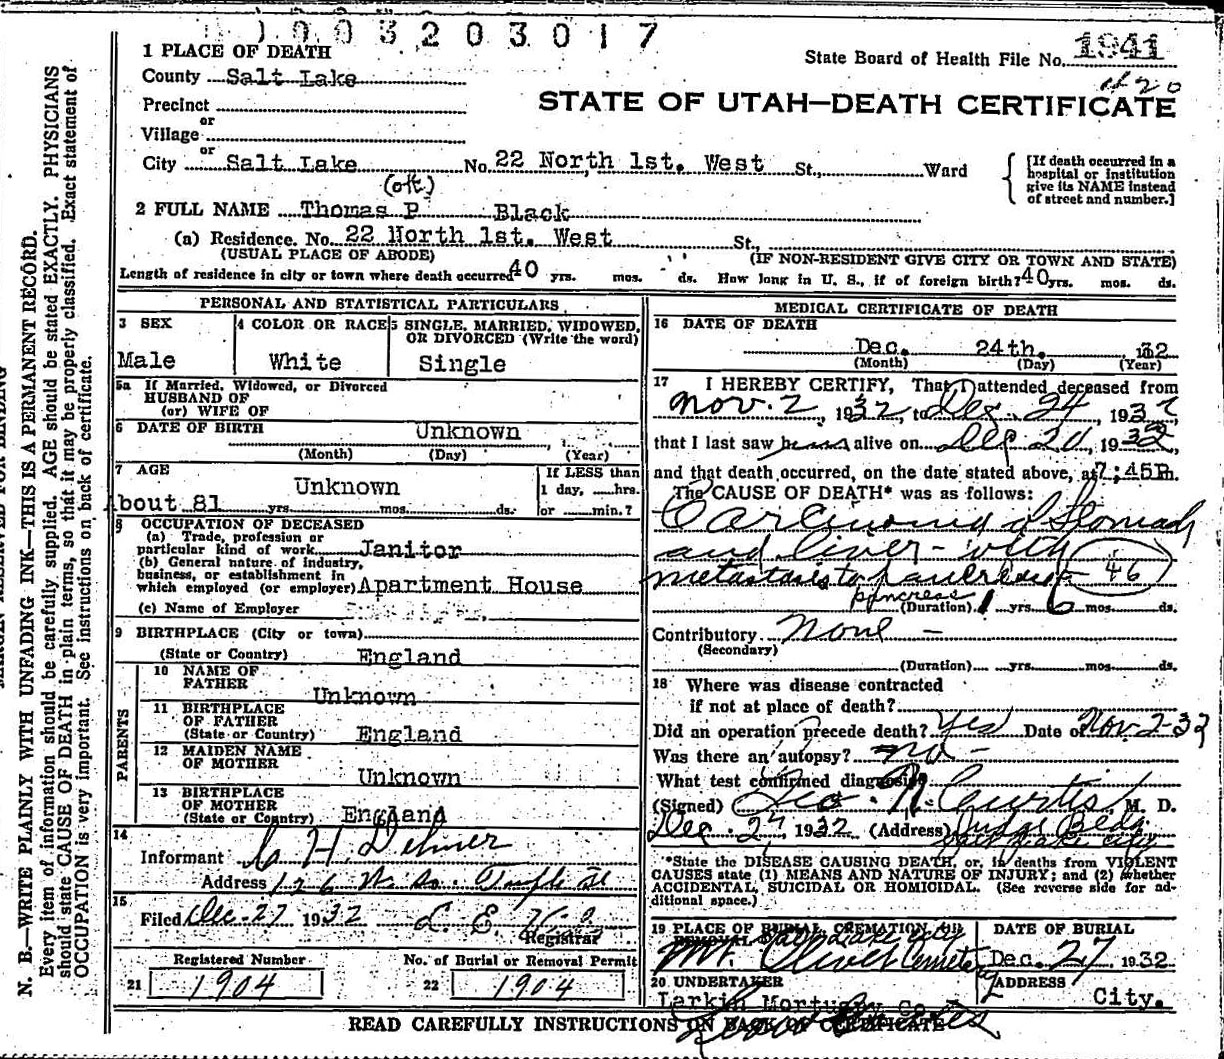 1003203017
1 PLACE OF DEATH
State Board of Health File No. 1941
County Salt Lake
of 20
Precinct
or
STATE OF UTAH—DEATH CERTIFICATE
Village
or
City Salt Lake No. 22 North 1st. West St., Ward
[If death occurred in a hospital or institution give its NAME instead of street and number.]
2 FULL NAME Thomas P Black
(a) Residence. No. 22 North 1st. West St.,
(USUAL PLACE OF ABODE) (IF NON-RESIDENT GIVE CITY OR TOWN AND STATE)
Length of residence in city or town where death occurred 40 yrs. mos. ds. How long in U. S., if of foreign birth? 40 yrs. mos. ds.
PERSONAL AND STATISTICAL PARTICULARS
3 SEX
Male
4 COLOR OR RACE
White
5 SINGLE, MARRIED, WIDOWED,
OR DIVORCED (Write the word)
Single
5a If Married, Widowed, or Divorced
HUSBAND OF
(or) WIFE OF
6 DATE OF BIRTH Unknown
(Month) (Day) (Year)
7 AGE
Unknown
About 81 yrs. mos. ds.
If LESS than
1 day, hrs.
or min.?
8 OCCUPATION OF DECEASED
(a) Trade, profession or
particular kind of work Janitor
(b) General nature of industry,
business, or establishment in
which employed (or employer) Apartment House
(c) Name of Employer
9 BIRTHPLACE (City or town)
(State or Country) England
PARENTS
10 NAME OF
FATHER Unknown
11 BIRTHPLACE
OF FATHER
(State or Country) England
12 MAIDEN NAME
OF MOTHER
Unknown
13 BIRTHPLACE
OF MOTHER
(State or Country) England
14
Informant C H. Delmer
Address 126 W. So. Temple St
15
Filed Dec-27 1932
Registrar
Registered Number No. of Burial or Removal Permit
21 1904 22 1904
MEDICAL CERTIFICATE OF DEATH
16 DATE OF DEATH
Dec. 24th. 1932
(Month) (Day) (Year)
17 I HEREBY CERTIFY, That I attended deceased from
Nov. 2, 1932, to Dec. 24, 1932
that I last saw him alive on Dec 20, 1932,
and that death occurred, on the date stated above, at 7:45P.m.
The CAUSE OF DEATH* was as follows:
Carcinoma of Stomach
and liver - with
metastasis to pancreas - 46
pancreas
(Duration) 1 yrs. 6 mos. ds.
Contributory None -
(Secondary)
(Duration) yrs. mos. ds.
18 Where was disease contracted
if not at place of death?
Did an operation precede death? Yes Date of Nov 2-32
Was there an autopsy? no -
What test confirmed diagnosis?
(Signed) Geo. N. Curtis M. D.
Dec. 27, 1932 (Address) Judge Bldg.
Salt Lake City
*State the DISEASE CAUSING DEATH, or, in deaths from VIOLENT
CAUSES state (1) MEANS AND NATURE OF INJURY; and (2) whether
ACCIDENTAL, SUICIDAL OR HOMICIDAL. (See reverse side for ad-
ditional space.)
19 PLACE OF BURIAL, CREMATION, OR
REMOVAL Salt Lake City
Mt. Olivet Cemetery
DATE OF BURIAL
Dec. 27, 1932
20 UNDERTAKER
Larkin Mortuary Co.
ADDRESS
City.
READ CAREFULLY INSTRUCTIONS ON BACK OF CERTIFICATE
MARGIN RESERVED FOR BINDING
N. B.—WRITE PLAINLY WITH UNFADING INK—THIS IS A PERMANENT RECORD.
Every item of information should be carefully supplied. AGE should be stated EXACTLY. PHYSICIANS
should state CAUSE OF DEATH in plain terms, so that it may be properly classified. Exact statement of
OCCUPATION is very important. See instructions on back of certificate.